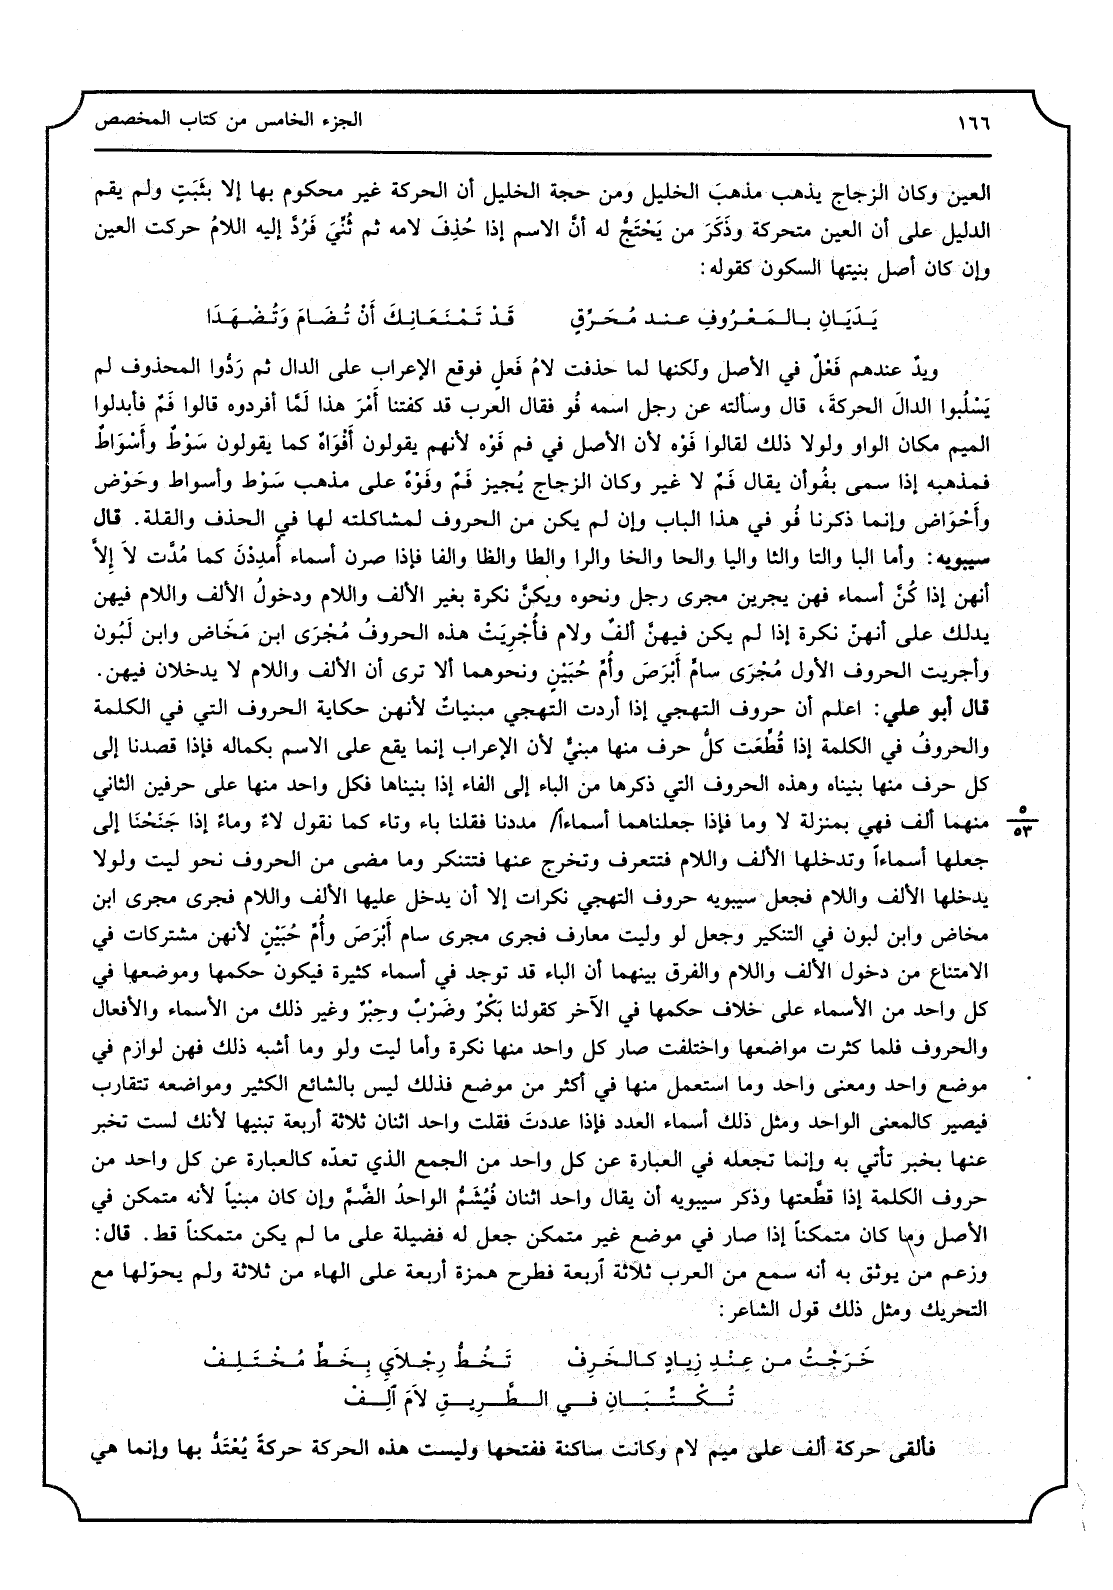 ١٦٦
الجزء الخامس من كتاب المخصص
العين وكان الزجاج يذهب مذهبَ الخليل ومن حجة الخليل أن الحركة غير محكوم بها إلا بثَبَتٍ ولم يقم
الدليل على أن العين متحركة وذَكَرَ من يَحْتَجُّ له أنَّ الاسم إذا حُذِفَ لامه ثم ثُنِّيَ فَرُدَّ إليه اللامُ حركت العين
وإن كان أصل بنيتها السكون كقوله:
يَدَيَانِ بالمَعْرُوفِ عند مُحَرِّقٍ قَدْ تَمْنَعَانِكَ أَنْ تُضَامَ وَتُضْهَدَا
ويدٌ عندهم فَعْلٌ في الأصل ولكنها لما حذفت لامُ فَعلٍ فوقع الإعراب على الدال ثم رَدُّوا المحذوف لم
يَسْلُبوا الدالَ الحركةَ، قال وسألته عن رجل اسمه فُو فقال العرب قد كفتنا أمْرَ هذا لَمَّا أفردوه قالوا فَمٌ فأبدلوا
الميم مكان الواو ولولا ذلك لقالوا فَوْه لأن الأصل في فم فَوْه لأنهم يقولون أفْوَاهٌ كما يقولون سَوْطٌ وأَسْوَاطٌ
فمذهبه إذا سمى بفُوأن يقال فَمٌ لا غير وكان الزجاج يُجيز فَمٌ وفَوْهٌ على مذهب سَوْط وأسواط وحَوْض
وأَحْوَاض وإنما ذكرنا فُو في هذا الباب وإن لم يكن من الحروف لمشاكلته لها في الحذف والقلة. قال
سيبويه: وأما البا والتا والثا واليا والحا والخا والرا والطا والظا والفا فإذا صرن أسماء أُمدِدْنَ كما مُدَّت لاَ إلاَّ
أنهن إذا كُنَّ أسماء فهن يجرين مجرى رجل ونحوه ويكنَّ نكرة بغير الألف واللام ودخولُ الألف واللام فيهن
يدلك على أنهنّ نكرة إذا لم يكن فيهنَّ ألفٌ ولام فأُجرِيَتْ هذه الحروفُ مُجْرَى ابنِ مَخَاض وابن لَبُون
وأجريت الحروف الأول مُجْرَى سامِّ أَبْرَصَ وأُمِّ حُبَيْنٍ ونحوهما ألا ترى أن الألف واللام لا يدخلان فيهن.
قال أبو علي: اعلم أن حروف التهجي إذا أردت التهجي مبنياتٌ لأنهن حكاية الحروف التي في الكلمة
والحروفُ في الكلمة إذا قُطِّعَت كلُّ حرف منها مبنيٌّ لأن الإعراب إنما يقع على الاسم بكماله فإذا قصدنا إلى
كل حرف منها بنيناه وهذه الحروف التي ذكرها من الباء إلى الفاء إذا بنيناها فكل واحد منها على حرفين الثاني
منهما ألف فهي بمنزلة لا وما فإذا جعلناهما أسماءاً/ مددنا فقلنا باء وتاء كما نقول لاءٌ وماءٌ إذا جَنَحْنَا إلى
٥
٥٣
جعلها أسماءاً وتدخلها الألف واللام فتتعرف وتخرج عنها فتتنكر وما مضى من الحروف نحو ليت ولولا
يدخلها الألف واللام فجعل سيبويه حروف التهجي نكرات إلا أن يدخل عليها الألف واللام فجرى مجرى ابن
مخاض وابن لبون في التنكير وجعل لو وليت معارف فجرى مجرى سام أَبْرَصَ وأُمِّ حُبَيْنٍ لأنهن مشتركات في
الامتناع من دخول الألف واللام والفرق بينهما أن الباء قد توجد في أسماء كثيرة فيكون حكمها وموضعها في
كل واحد من الأسماء على خلاف حكمها في الآخر كقولنا بَكْرٌ وضَرْبٌ وحِبْرٌ وغير ذلك من الأسماء والأفعال
والحروف فلما كثرت مواضعها واختلفت صار كل واحد منها نكرة وأما ليت ولو وما أشبه ذلك فهن لوازم في
موضع واحد ومعنى واحد وما استعمل منها في أكثر من موضع فذلك ليس بالشائع الكثير ومواضعه تتقارب
فيصير كالمعنى الواحد ومثل ذلك أسماء العدد فإذا عددتَ فقلت واحد اثنان ثلاثة أربعة تبنيها لأنك لست تخبر
عنها بخبر تأتي به وإنما تجعله في العبارة عن كل واحد من الجمع الذي تعدّه كالعبارة عن كل واحد من
حروف الكلمة إذا قطَّعتها وذكر سيبويه أن يقال واحد اثنان فُيُشَمُّ الواحدُ الضَّمَّ وإن كان مبنياً لأنه متمكن في
الأصل وما كان متمكناً إذا صار في موضع غير متمكن جعل له فضيلة على ما لم يكن متمكناً قط. قال:
وزعم من يوثق به أنه سمع من العرب ثلاثة أربعة فطرح همزة أربعة على الهاء من ثلاثة ولم يحوّلها مع
التحريك ومثل ذلك قول الشاعر:
خَرَجْتُ من عِنْدِ زِيادٍ كالخَرِفْ تَخُطُّ رِجْلاَيِ بِخَطٍّ مُخْتَلِفْ
تُكْتِّبَانِ في الطَّرِيقِ لاَمَ آلِفْ
فألقى حركة ألف على ميم لام وكانت ساكنة ففتحها وليست هذه الحركة حركةً يُعْتَدُّ بها وإنما هي